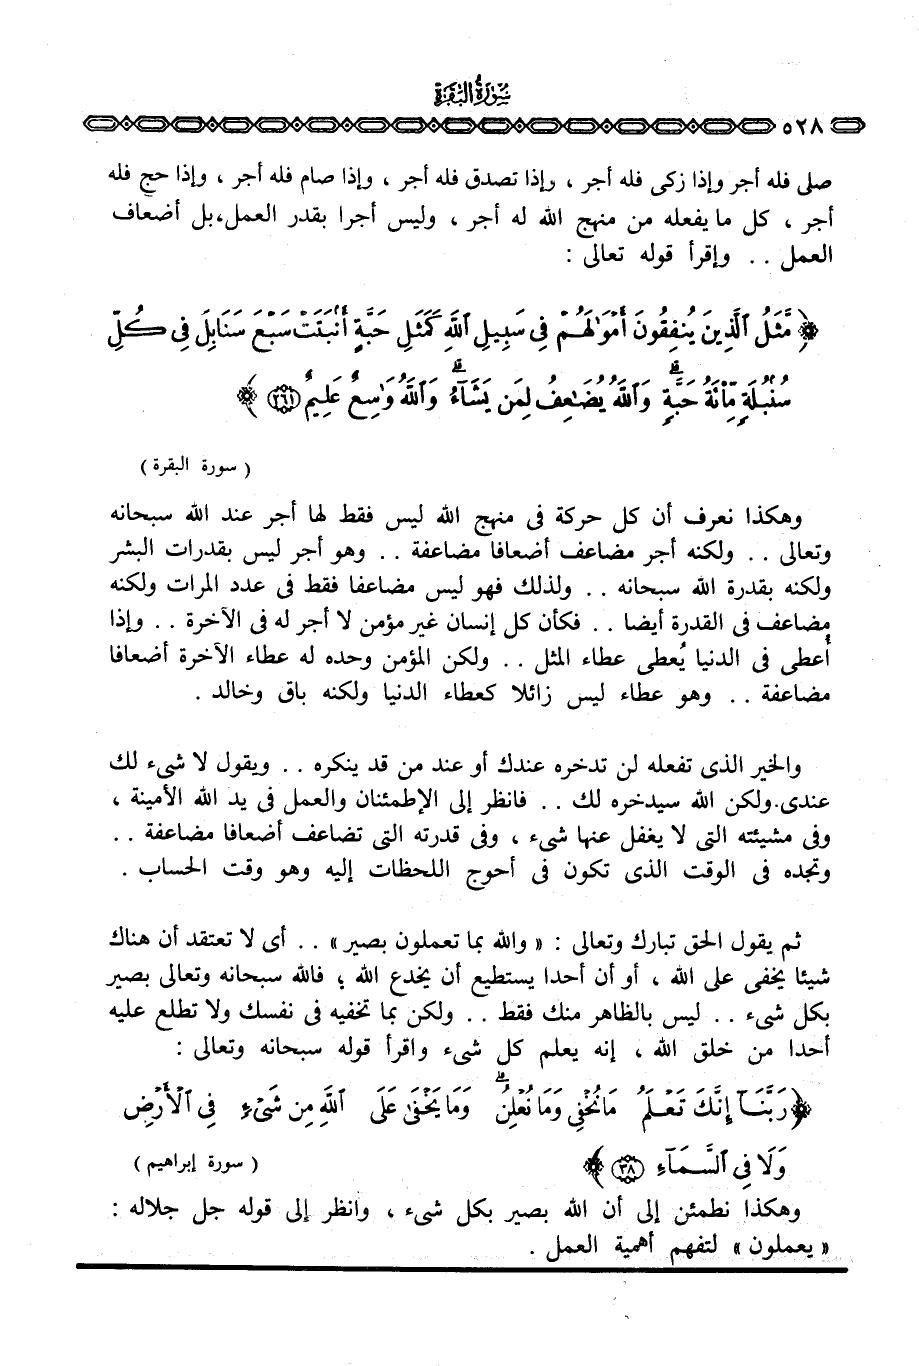 سورة البقرة
٥٢٨
صلى فله أجر وإذا زكى فله أجر ، وإذا تصدق فله أجر ، وإذا صام فله أجر ، وإذا حج فله
أجر ، كل مايفعله من منهج الله له أجر ، وليس أجرا بقدر العمل،بل أضعاف
العمل .. وإقرأ قوله تعالى :
﴿ مَّثَلُ ٱلَّذِينَ يُنفِقُونَ أَمْوَٰلَهُمْ فِى سَبِيلِ ٱللَّهِ كَمَثَلِ حَبَّةٍ أَنۢبَتَتْ سَبْعَ سَنَابِلَ فِى كُلِّ
سُنۢبُلَةٍ مِّا۟ئَةُ حَبَّةٍ ۗ وَٱللَّهُ يُضَٰعِفُ لِمَن يَشَآءُ ۗ وَٱللَّهُ وَٰسِعٌ عَلِيمٌ ٢٦١ ﴾
( سورة البقرة )
وهكذا نعرف أن كل حركة فى منهج الله ليس فقط لها أجر عند الله سبحانه
وتعالى .. ولكنه أجر مضاعف أضعافا مضاعفة .. وهو أجر ليس بقدرات البشر
ولكنه بقدرة الله سبحانه .. ولذلك فهو ليس مضاعفا فقط فى عدد المرات ولكنه
مضاعف فى القدرة أيضا .. فكأن كل إنسان غير مؤمن لا أجر له فى الآخرة .. وإذا
أُعطى فى الدنيا يُعطى عطاء المثل .. ولكن المؤمن وحده له عطاء الآخرة أضعافا
مضاعفة .. وهو عطاء ليس زائلا كعطاء الدنيا ولكنه باق وخالد .
والخير الذى تفعله لن تدخره عندك أو عند من قد ينكره .. ويقول لا شىء لك
عندى.ولكن الله سيدخره لك .. فانظر إلى الإطمئنان والعمل فى يد الله الأمينة ،
وفى مشيئته التى لا يغفل عنها شىء ، وفى قدرته التى تضاعف أضعافا مضاعفة ..
وتجده فى الوقت الذى تكون فى أحوج اللحظات إليه وهو وقت الحساب .
ثم يقول الحق تبارك وتعالى : « والله بما تعملون بصير » .. أى لا تعتقد أن هناك
شيئا يخفى على الله ، أو أن أحدا يستطيع أن يخدع الله ؛ فالله سبحانه وتعالى بصير
بكل شىء .. ليس بالظاهر منك فقط .. ولكن بما تخفيه فى نفسك ولا تطلع عليه
أحدا من خلق الله ، إنه يعلم كل شىء واقرأ قوله سبحانه وتعالى :
﴿ رَبَّنَآ إِنَّكَ تَعْلَمُ مَا نُخْفِى وَمَا نُعْلِنُ ۗ وَمَا يَخْفَىٰ عَلَى ٱللَّهِ مِن شَىْءٍ فِى ٱلْأَرْضِ
وَلَا فِى ٱلسَّمَآءِ ٣٨ ﴾ ( سورة إبراهيم )
وهكذا نطمئن إلى أن الله بصير بكل شىء ، وانظر إلى قوله جل جلاله :
« يعملون » لتفهم أهمية العمل .